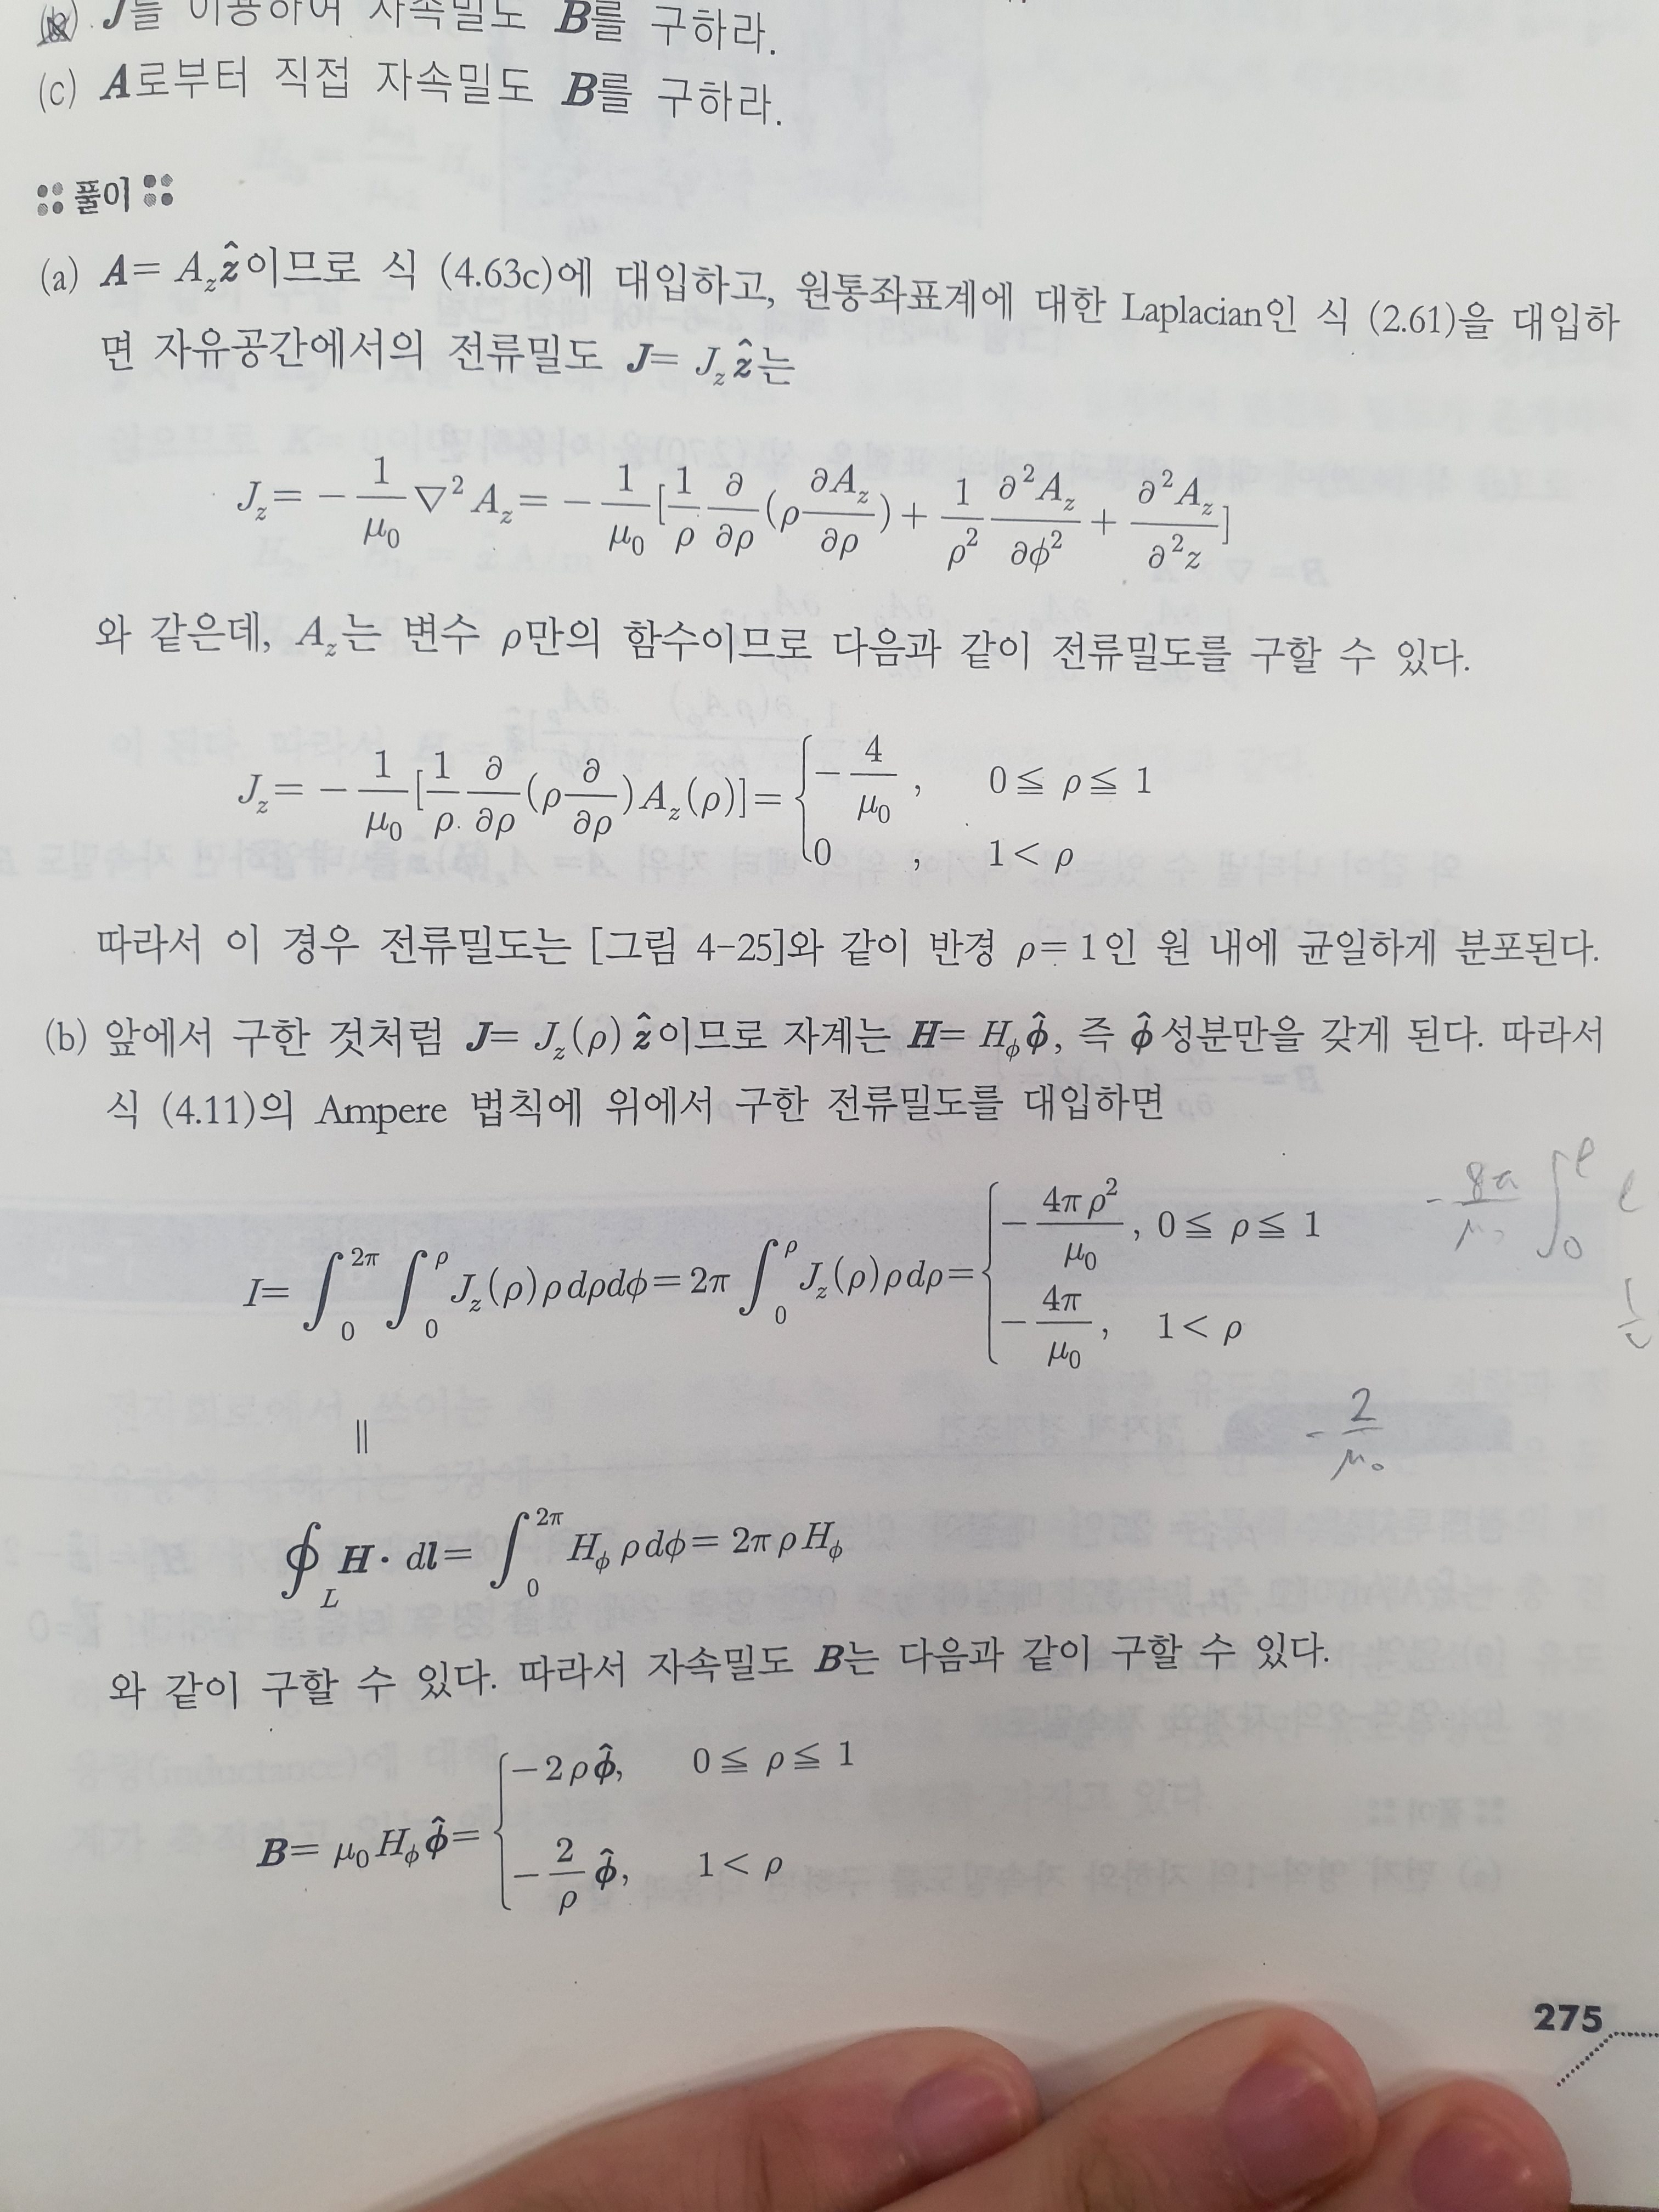 (b) J를 이용하여 자속밀도 B를 구하라.
(c) A로부터 직접 자속밀도 B를 구하라.
풀이
(a) A= A_z ẑ이므로 식 (4.63c)에 대입하고, 원통좌표계에 대한 Laplacian인 식 (2.61)을 대입하
면 자유공간에서의 전류밀도 J= J_z ẑ는
J_z = − 1/μ₀ ∇² A_z = − 1/μ₀ [ 1/ρ ∂/∂ρ (ρ ∂A_z/∂ρ) + 1/ρ² ∂²A_z/∂φ² + ∂²A_z/∂²z ]
와 같은데, A_z는 변수 ρ만의 함수이므로 다음과 같이 전류밀도를 구할 수 있다.
J_z = − 1/μ₀ [ 1/ρ ∂/∂ρ (ρ ∂/∂ρ) A_z(ρ)] = { − 4/μ₀ , 0≦ ρ≦ 1
0 , 1< ρ
따라서 이 경우 전류밀도는 [그림 4-25]와 같이 반경 ρ= 1인 원 내에 균일하게 분포된다.
(b) 앞에서 구한 것처럼 J= J_z(ρ) ẑ이므로 자계는 H= H_φ φ̂, 즉 φ̂ 성분만을 갖게 된다. 따라서
식 (4.11)의 Ampere 법칙에 위에서 구한 전류밀도를 대입하면
I= ∫₀^2π ∫₀^ρ J_z(ρ) ρ dρdφ = 2π ∫₀^ρ J_z(ρ) ρ dρ = { − 4πρ²/μ₀ , 0≦ ρ≦ 1
− 4π/μ₀ , 1< ρ
− 8π/μ₀ ∫₀^ρ ρ
− 2/μ₀
||
∮_L H· dl = ∫₀^2π H_φ ρ dφ = 2πρ H_φ
와 같이 구할 수 있다. 따라서 자속밀도 B는 다음과 같이 구할 수 있다.
B= μ₀ H_φ φ̂ = { − 2ρ φ̂, 0≦ ρ≦ 1
− 2/ρ φ̂, 1< ρ
275